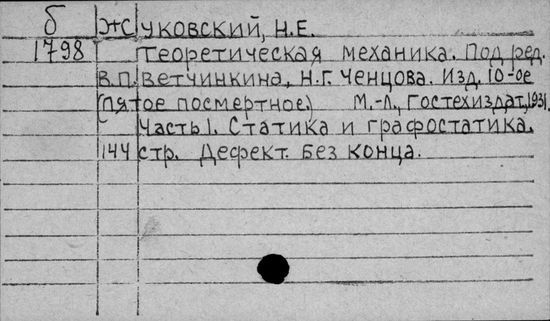 б Жуковский, Н.Е.
1798 Теоретическая механика. Под ред.
В.П. Ветчинкина, Н.Г. Ченцова. Изд. 10-ое
(пятое посмертное) М.-Л., Гостехиздат, 1931.
Часть 1. Статика и графостатика.
144 стр. Дефект. Без конца.